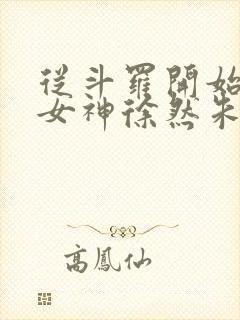 從斗羅開始
女神徐然朱
高鳳仙